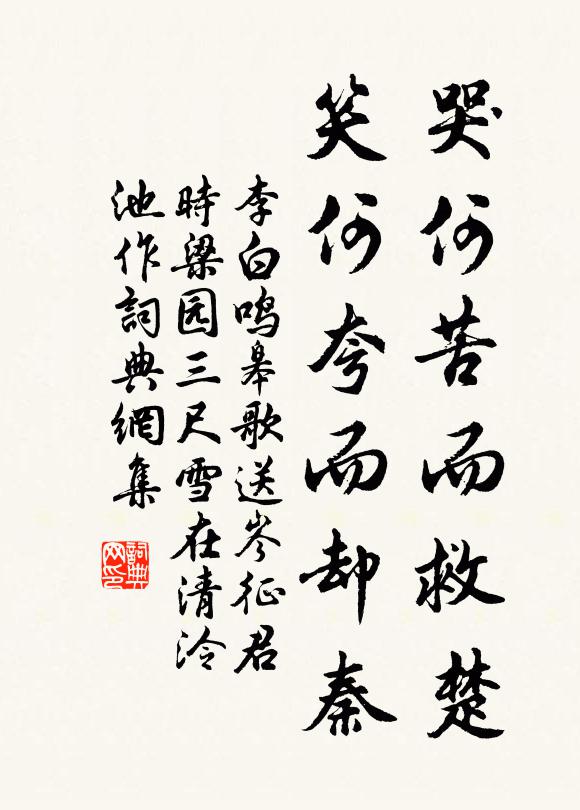 哭何苦而救楚
笑何夸而却秦
李白鸣皋歌送岑征君
時梁园三尺雪在清泠
池作詞典網集
詞典
网印